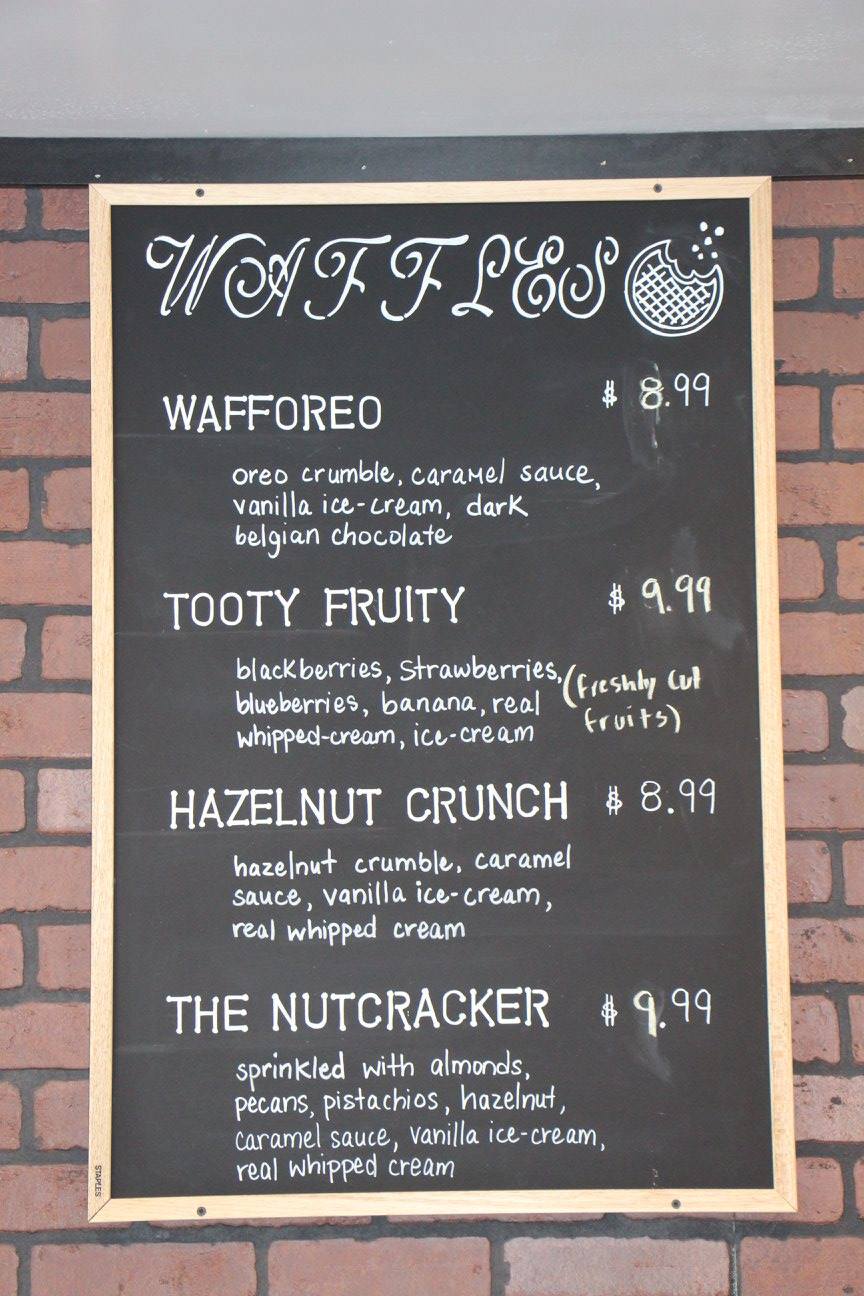 WAFFLES
WAFFOREO $ 8.99
oreo crumble, caramel sauce,
vanilla ice-cream, dark
belgian chocolate
TOOTY FRUITY $ 9.99
blackberries, Strawberries,
blueberries, banana, real
whipped-cream, ice-cream
(freshly cut
fruits)
HAZELNUT CRUNCH $ 8.99
hazelnut crumble, caramel
sauce, vanilla ice-cream,
real whipped cream
THE NUTCRACKER $ 9.99
sprinkled with almonds,
pecans, pistachios, hazelnut,
caramel sauce, vanilla ice-cream,
real whipped cream
STAPLES